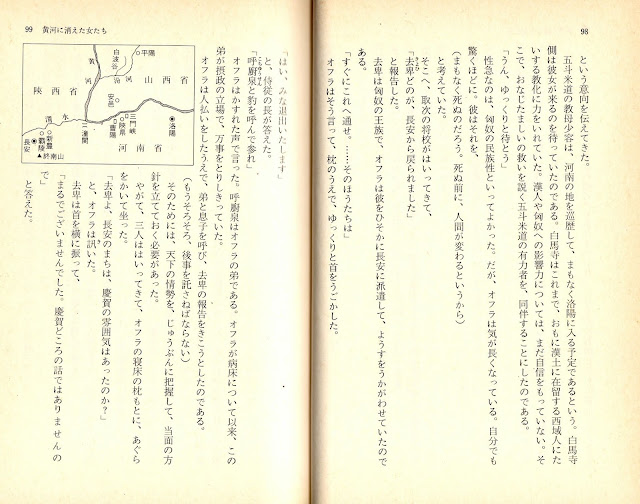 98
という意向を伝えてきた。
五斗米道の教母少容は、河南の地を巡歴して、まもなく洛陽に入る予定であるという。白馬寺
側は彼女が来るのを待っていたのである。白馬寺はこれまで、おもに漢土に在留する西域人にた
いする教化に力をいれていた。漢人や匈奴への影響力については、まだ自信をもっていない。そ
こで、おなじたましいの救いを説く五斗米道の有力者を、同伴することにしたのである。
「うん、ゆっくりと待とう」
性急なのは、匈奴の民族性といってよかった。だが、オフラは気が長くなっている。自分でも
驚くほどに。彼はそれを、
(まもなく死ぬのだろう。死ぬ前に、人間が変わるというから)
と考えていた。
そこへ、取次の将校がはいってきて、
「去卑どのが、長安から戻られました」
と報告した。
去卑は匈奴の王族で、オフラは彼をひそかに長安に派遣して、ようすをうかがわせていたので
ある。
「すぐにこれへ通せ。……そのほうたちは」
オフラはそう言って、枕のうえで、ゆっくりと首をうごかした。
99 黄河に消えた女たち
「はい、みな退出いたします」
と、侍従の長が答えた。
「呼廚泉と豹を呼んで参れ」
オフラはかすれた声で言った。呼廚泉はオフラの弟である。オフラが病床について以来、この
弟が摂政の立場で、万事をとりしきっていた。
オフラは人払いをしたうえで、弟と息子を呼び、去卑の報告をきこうとしたのである。
(もうそろそろ、後事を託さねばならない)
そのためには、天下の情勢を、じゅうぶんに把握して、当面の方
針を立てておく必要があった。
やがて、三人ははいってきて、オフラの寝床の枕もとに、あぐら
をかいて坐った。
「去卑よ、長安のまちは、慶賀の雰囲気はあったのか?」
と、オフラは訊いた。
去卑は首を横に振って、
「まるでございませんでした。慶賀どころの話ではありませんの
で」
と答えた。
平陽
白波谷
汾河
黄河
山西省
陝西省
安邑
三門峡
陝県
曹陽
潼関
洛陽
河南省
渭水
新豊
覇陵
長安
▲終南山